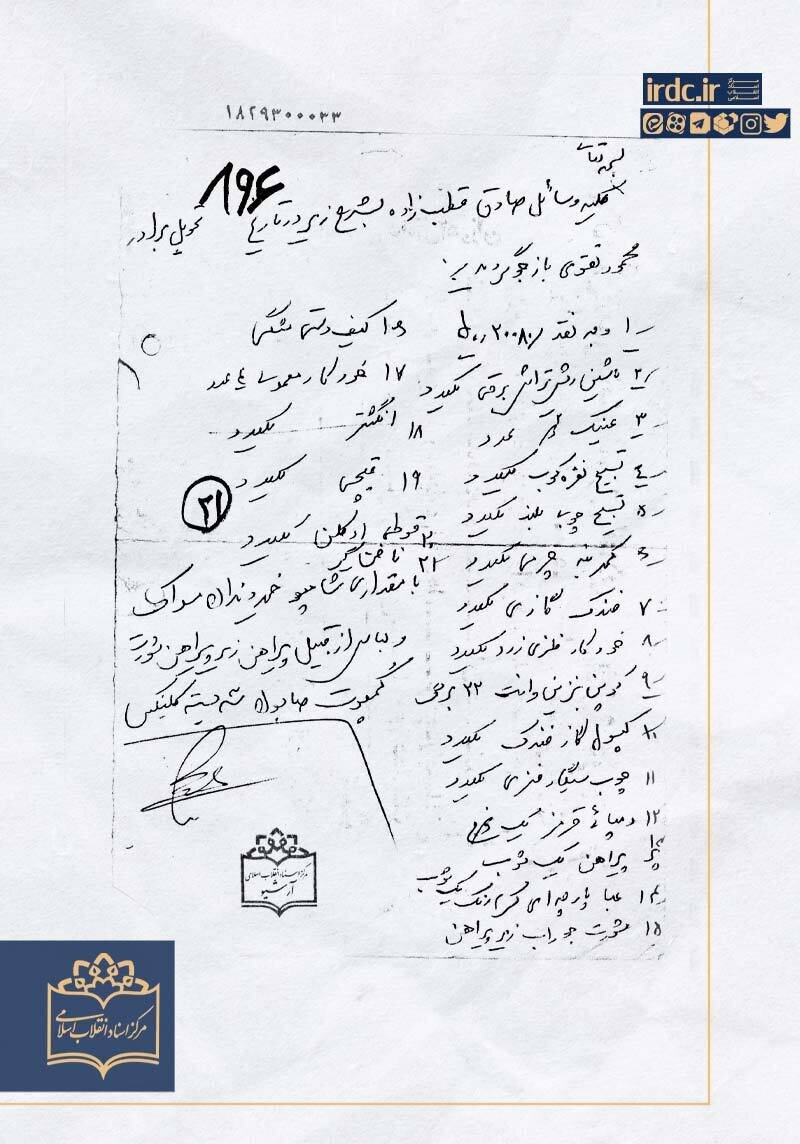 irdc.ir
مرکز اسناد انقلاب اسلامی
۱۸۲۹۳۰۰۰۳۳
بسمه تعالی
۸۹۶
کلیه وسائل صادق قطب زاده بشرح زیر در تاریخ تحویل برادر
محمود تقوی بازجو گردید
۱ وجه نقد ۲۰۰۸۰ ریال
۲ ماشین ریش تراش برقی یکعدد
۳ عینک ۲ عدد
۴ تسبیح نقره کوب یکعدد
۵ تسبیح چوب بلند یکعدد
۶ کمربند چرمی یکعدد
۷ فندک گازی یکعدد
۸ خودکار فلزی زرد یکعدد
۹ کوپن بنزین وانت ۲۲ برگی
۱۰ کپسول گاز فندک یکعدد
۱۱ چوب سیگار فنری یکعدد
۱۲ دمپائی قرمز یک زوج
۱۳ پیراهن یک ثوب
۱۴ عبا پارچه ای کرم رنگ یک ثوب
۱۵ شورت جوراب زیرپیراهن
۱۶ کیف دستی مشکی
۱۷ خودکار معمولی عدد
۱۸ انگشتر یکعدد
۱۹ قیچی یکعدد
۲۱
۲۰ قوطی ادکلن یکعدد
۲۱ ناخنگیر
با مقداری شامپو خمیر دندان مسواک
و لباس از قبیل پیراهن زیر پیراهن شورت
کمپوت صابون سه بسته کلینکس
مرکز اسناد انقلاب اسلامی
آرشیو
مرکز اسناد انقلاب اسلامی